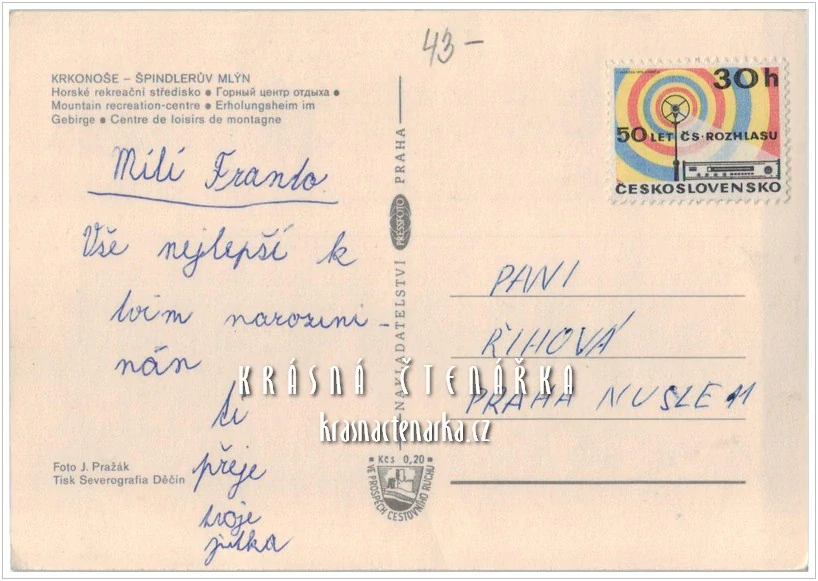 43-
KRKONOŠE – ŠPINDLERŮV MLÝN
Horské rekreační středisko ● Горный центр отдыха ●
Mountain recreation-centre ● Erholungsheim im
Gebirge ● Centre de loisirs de montagne
Milí Frando
Vše nejlepší k
tvim narozini-
nán
ti
přeje
tvoje
jitka
Foto J. Pražák
Tisk Severografia Děčín
NAKLADATELSTVÍ PRESSFOTO PRAHA
Kčs 0,20
VE PROSPĚCH CESTOVNÍHO RUCHU
30h
50 LET ČS. ROZHLASU
ČESKOSLOVENSKO
PANI
ŘIHOVÁ
PRAHA NUSLE 11
KRÁSNÁ ČTENÁŘKA
krasnactenarka.cz